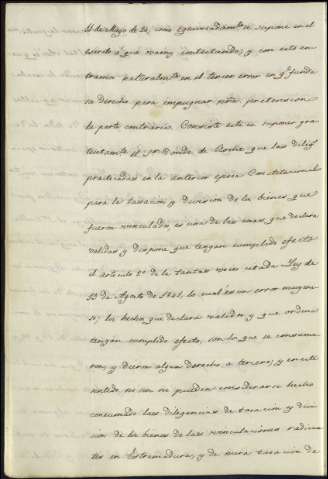 11 de Mayo de 20, como equivocadamte se supone en el
escrito á que vamos contestando; y con esto en-
tramos naturalmte en el tercer error en qe funda
su derecho para impugnar nra. pretension
la parte contraria. Consiste este en suponer gra-
tuitamte el Sor. Conde de que las diligs
practicadas en la anterior época Constitucional
para la tasacion y division de los bienes que
fueron vinculados, es una de las cosas, que declara
validas y dispone que tengan cumplido efecto
el articulo 2º de la tantas veces citada Ley de
19 de Agosto de 1841, lo cual es un error
los hechos que declara validos y que ordena
tengan cumplido efecto, son los que se consuma-
ron y dieron algun derecho a tercero; y en este
sentido no son ni pueden considerarse hechos
consumados las diligencias de tasacion y divi-
sion de los bienes de las vinculaciones radica-
tes en Estremadura, y de mera tasacion de